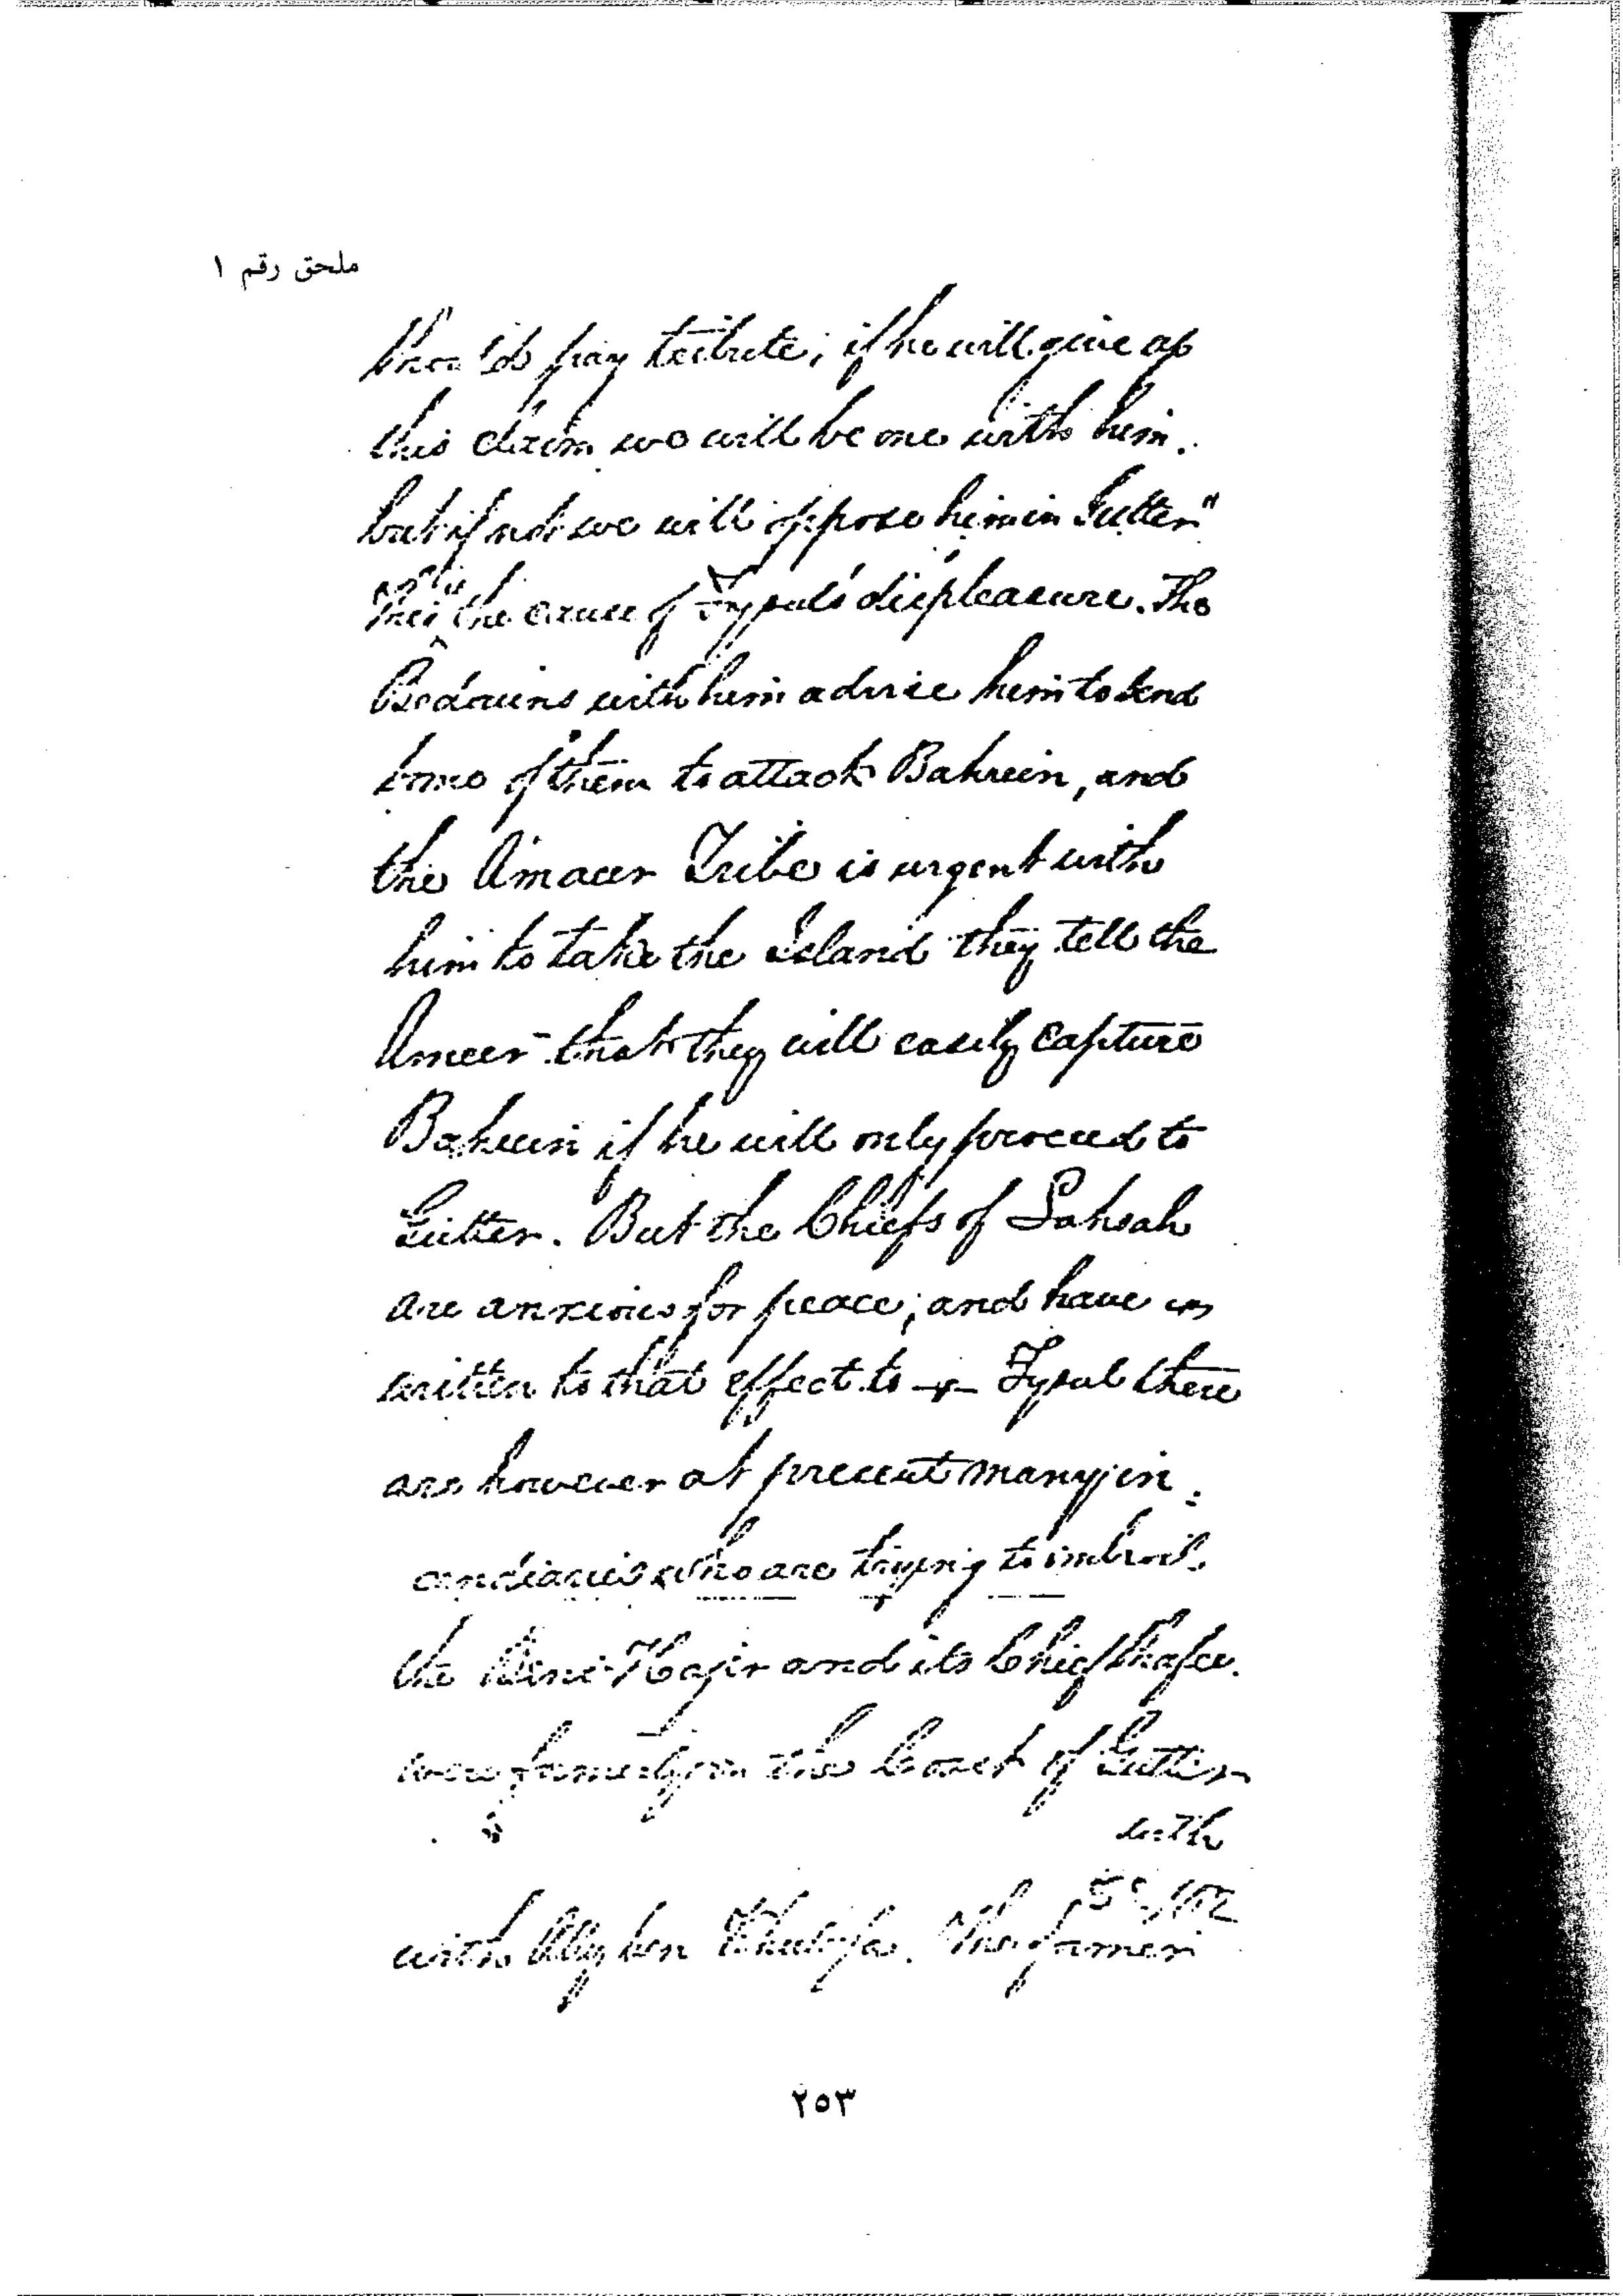 ملحق رقم ١
should pay tribute; if he will give up
this claim we will be one with him.
but if not we will oppose him in Gutter"
This the cause of Fysul's displeasure. The
Bedouins with him advise him to send
some of them to attack Bahrein, and
the Amaeer Tribe is urgent with
him to take the Island they tell the
Ameer that they will easily capture
Bahrein if he will only proceed to
Gutter. But the Chiefs of Lahsah
are anxious for peace; and have
written to that effect to Fysul there
are however at present many in:
cendiaries who are trying to imbroil.
the Beni Hajir and its Chief
were formerly on the Coast of Gutter
with
with Ally ben Khalifa. The former
٢٥٣